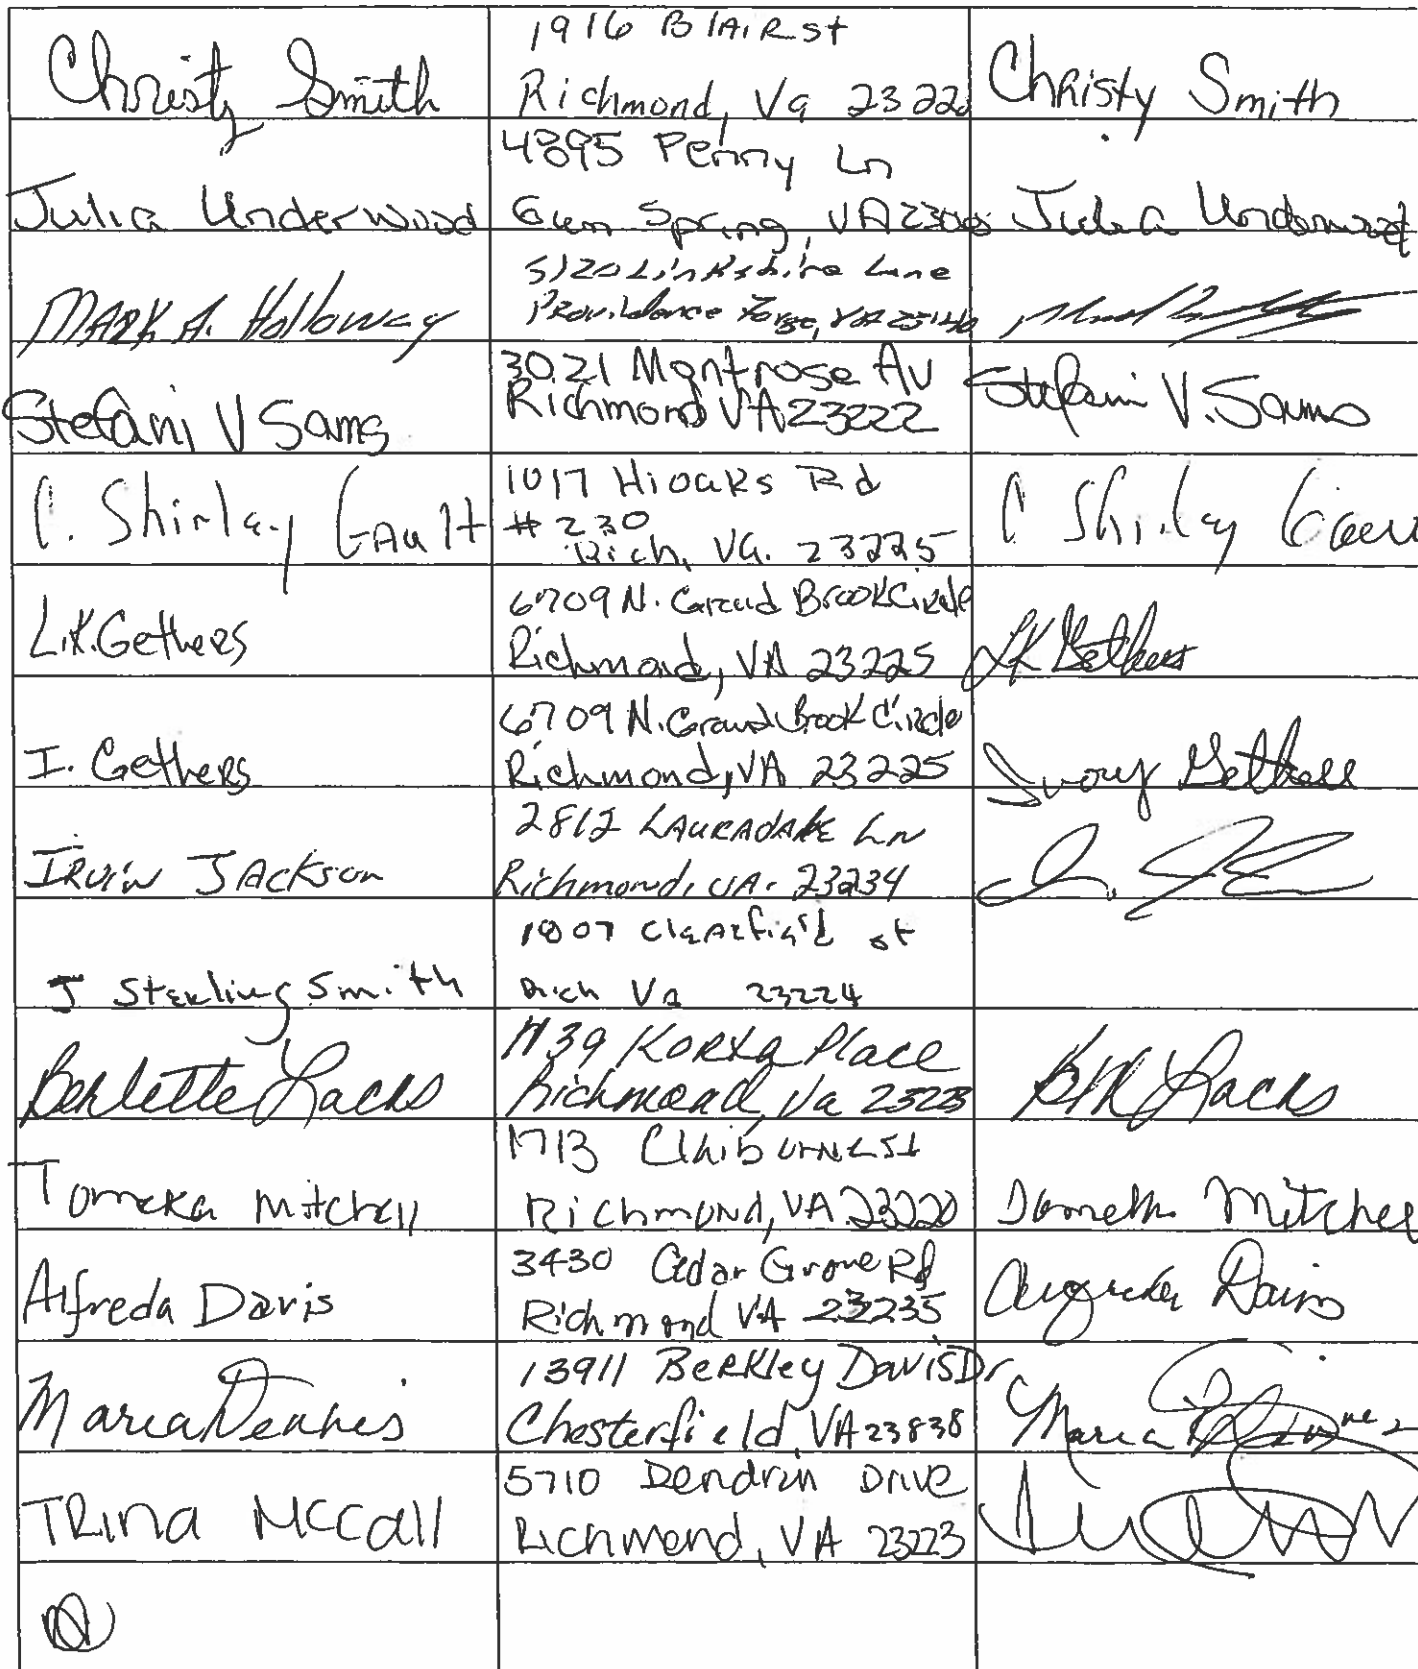 Christy Smith
1916 Blair st
Richmond, Va 23220
Christy Smith
Julia Underwood
4895 Penny Ln
Gum Spring, VA 23065
Julia Underwood
MARK A. Holloway
5120 Linkshire Lane
Providence Forge, VA 23140
Stefani V Sams
3021 Montrose Av
Richmond VA 23222
Stefani V. Sams
C. Shirley Gault
1017 Hioaks Rd
# 230
Rich, Va. 23225
C Shirley
L.K. Gethers
6709 N. Grand Brook Circle
Richmond, VA 23225
LK Gethers
I. Gethers
6709 N. Grand Brook Circle
Richmond, VA 23225
Ivory Gethers
IRVIN JACKSON
2812 LAURADALE LN
Richmond, VA. 23234
J Sterling Smith
1807 Clearfield st
Rich Va 23224
Berlette Lacks
1139 Place
Richmond, Va 23223
Lacks
Tomeka Mitchell
1713 Claiborne St
Richmond, VA 23220
Mitchell
Alfreda Davis
3430 Cedar Grove Rd
Richmond VA 23235
Davis
Maria Dennis
13911 Berkley Davis Dr
Chesterfield, VA 23838
Maria
TRina McCall
5710 Dendron Drive
Richmond, VA 23223